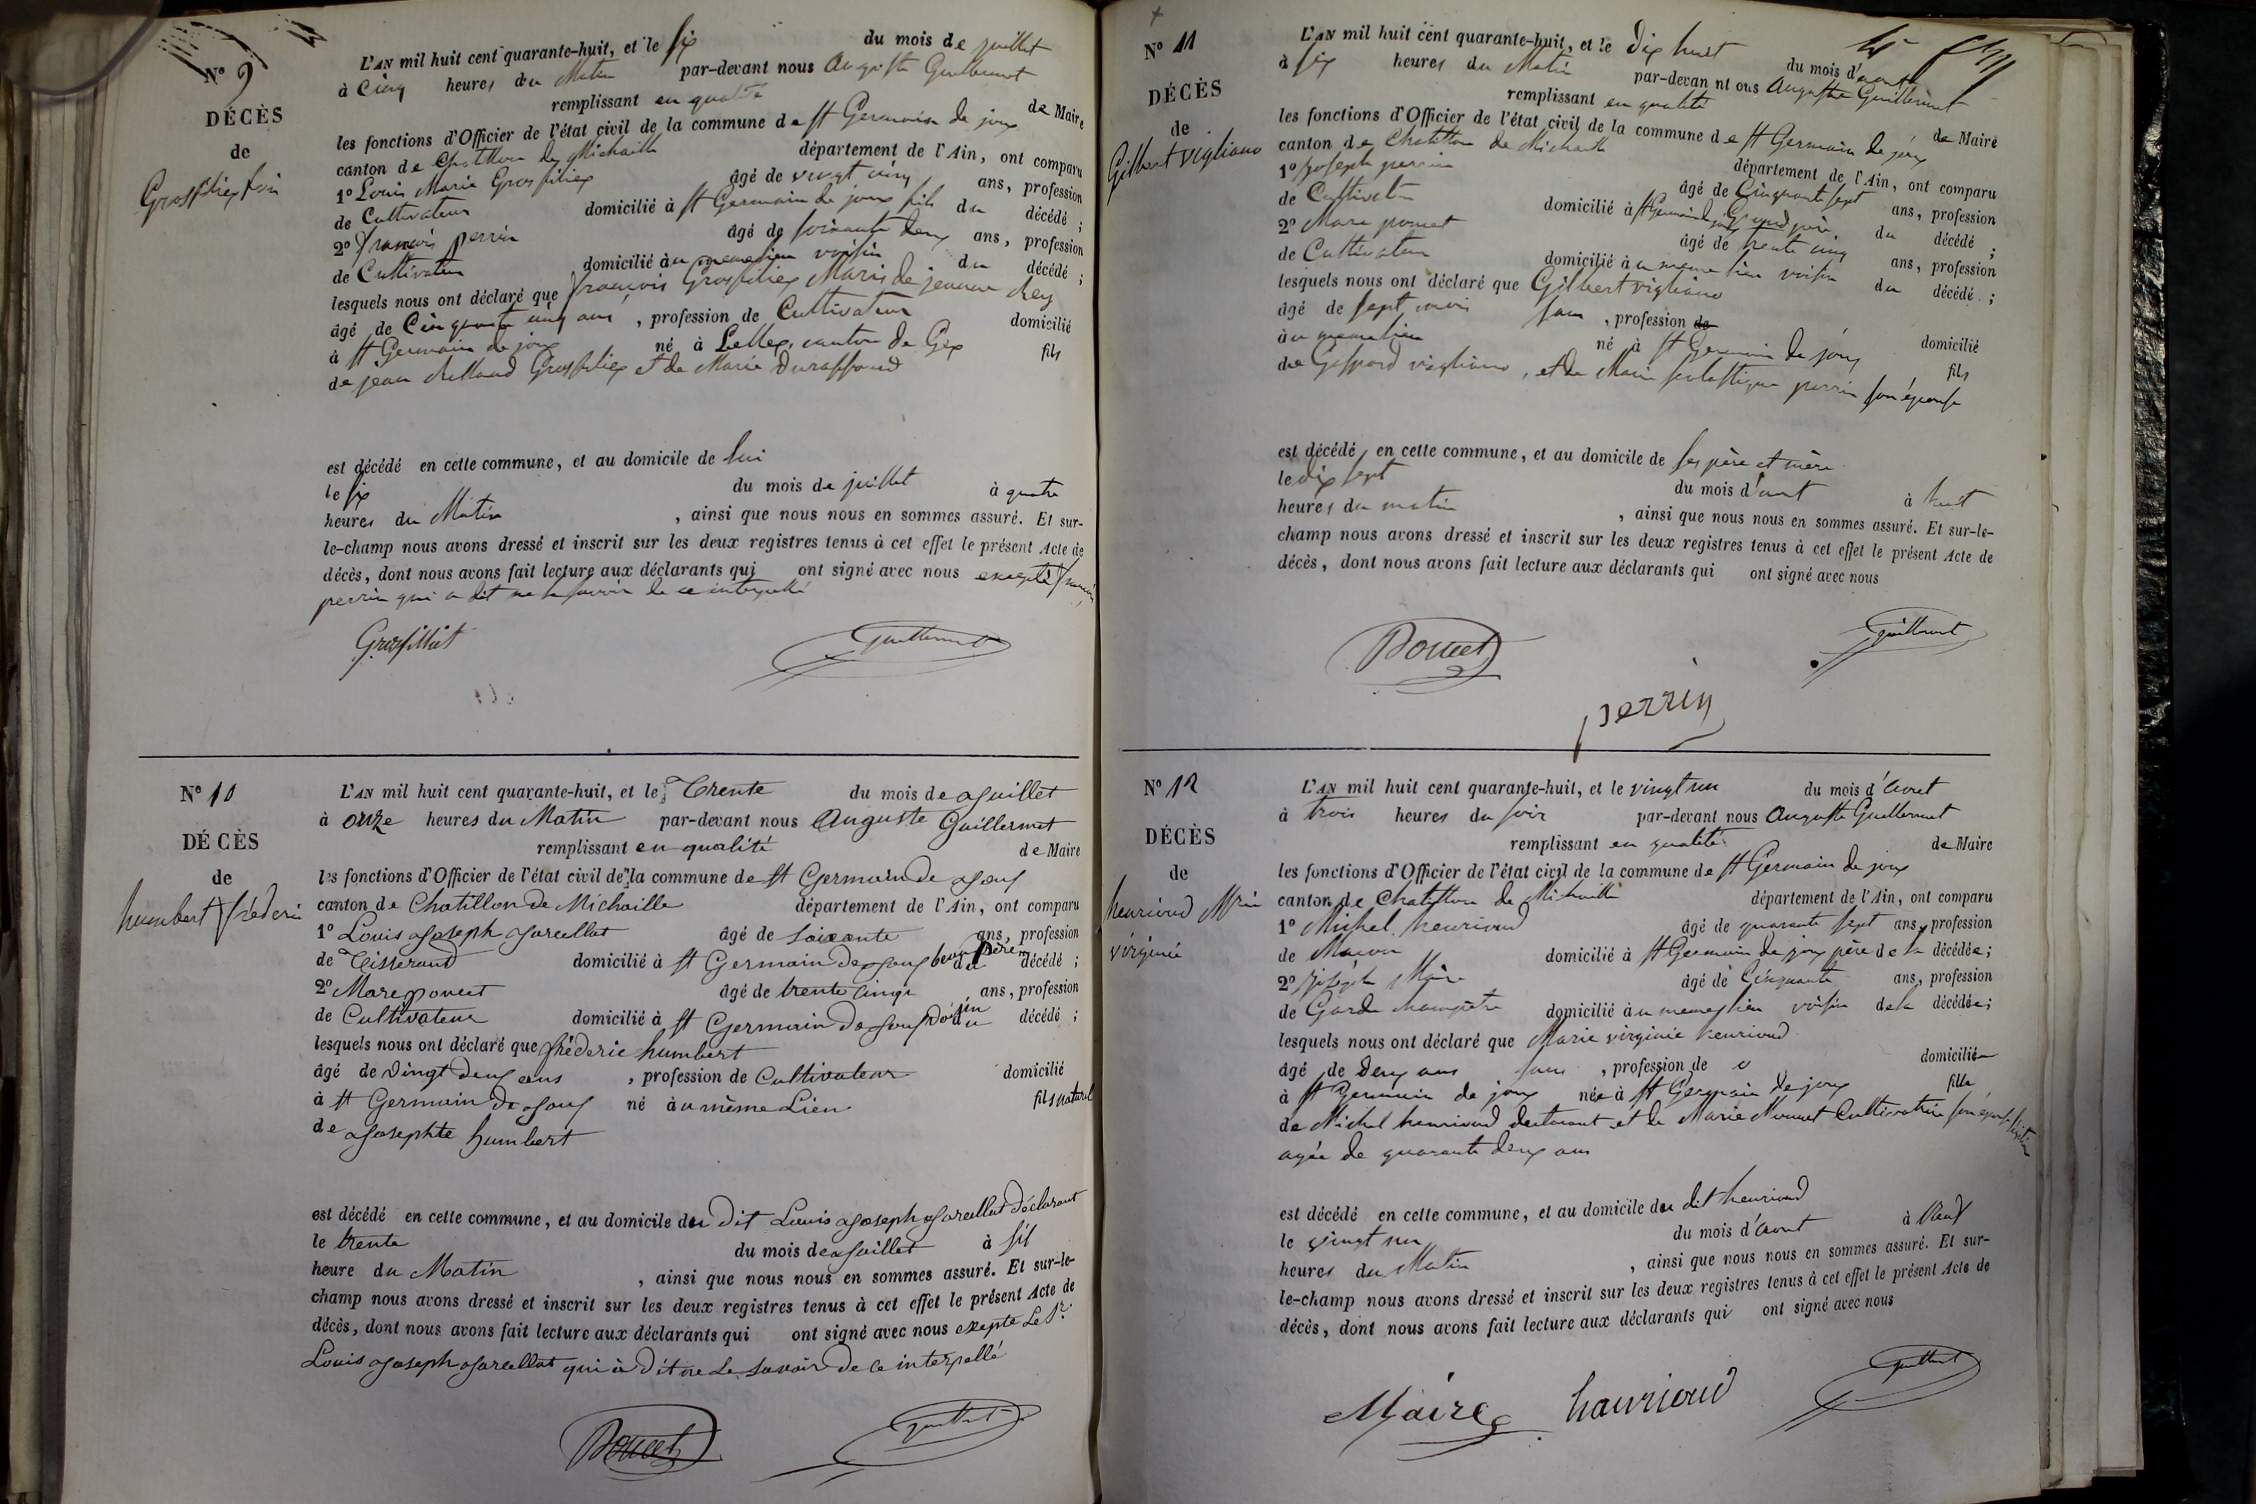 Nº 9
DÉCÈS
de
L'AN mil huit cent quarante-huit, et le six du mois de juillet
à cinq heures du Matin par-devant nous Auguste Guillermet
remplissant en qualité de Maire
les fonctions d'Officier de l'état civil de la commune de St Germain de joux
canton de Chatillon de Michaille département de l'Ain, ont comparu
1º Louis Marie Grosfiliex âgé de vingt cinq ans, profession
de Cultivateur domicilié à St Germain de joux fils du décédé ;
2º françois perrin âgé de soixante deux ans, profession
de Cultivateur domicilié au meme lieu voisin du décédé ;
lesquels nous ont déclaré que françois Grosfiliex Maris de jeanne Rey
âgé de Cinquante cinq ans , profession de Cultivateur domicilié
à St Germain de joux né à Lellex, canton de Gex fils
de jean Grosfiliex et de Marie Duraffourd
est décédé en cette commune, et au domicile de lui
le six du mois de juillet à quatre
heures du Matin , ainsi que nous nous en sommes assuré. Et sur-
le-champ nous avons dressé et inscrit sur les deux registres tenus à cet effet le présent Acte de
décès, dont nous avons fait lecture aux déclarants qui ont signé avec nous excepté françois
perrin qui a dit ne le savoir de ce interpellé
Grosfillet
Guillermet
Nº 10
DÉCÈS
de
humbert fréderic
L'AN mil huit cent quarante-huit, et le Trente du mois de Juillet
à onze heures du Matin par-devant nous Auguste Guillermet
remplissant en qualité de Maire
les fonctions d'Officier de l'état civil de la commune de St Germain de Joux
canton de Chatillon de Michaille département de l'Ain, ont comparu
1º Louis Joseph Jarcellat âgé de soixante ans, profession
de Tisserand domicilié à St Germain de Joux beau père du décédé ;
2º Marc poncet âgé de trente cinq ans, profession
de Cultivateur domicilié à St Germain de Joux voisin du décédé ;
lesquels nous ont déclaré que fréderic humbert
âgé de vingt deux ans , profession de Cultivateur domicilié
à St Germain de Joux né au même Lieu fils naturel
de Josephte humbert
est décédé en cette commune, et au domicile du dit Louis Joseph Jarcellat déclarant
le trente du mois de Juillet à six
heure du Matin , ainsi que nous nous en sommes assuré. Et sur-le-
champ nous avons dressé et inscrit sur les deux registres tenus à cet effet le présent Acte de
décès, dont nous avons fait lecture aux déclarants qui ont signé avec nous exepté Le Sr
Louis Joseph Jarcellat qui à dit ne Le savoir de ce interpellé
Poncet
Guillermet
Nº 11
DÉCÈS
de
Gilbert vigliano
L'AN mil huit cent quarante-huit, et le dix huit du mois d'aout
à six heures du Matin par-devan nt ous Auguste Guillermet
remplissant en qualité de Maire
les fonctions d'Officier de l'état civil de la commune de St Germain de joux
canton de Chatillon de Michaille département de l'Ain, ont comparu
1º joseph perrin âgé de Cinquante sept ans, profession
de Cultivateur domicilié à St Germain de joux Grand père du décédé ;
2º Marc poncet âgé de trente cinq ans, profession
de Cultivateur domicilié au meme lieu voisin du décédé ;
lesquels nous ont déclaré que Gilbert vigliano
âgé de sept mois sans , profession de
né à St Germain de joux domicilié
au meme lieu fils
de Gaspard vigliano, et de Marie scolastique perrin son épouse
est décédé en cette commune, et au domicile de ses père et mère
le dix sept du mois d'aout à huit
heures du matin , ainsi que nous nous en sommes assuré. Et sur-le-
champ nous avons dressé et inscrit sur les deux registres tenus à cet effet le présent Acte de
décès, dont nous avons fait lecture aux déclarants qui ont signé avec nous
Poncet
Guillermet
perrin
Nº 12
DÉCÈS
de
henrioud Marie
virginie
L'AN mil huit cent quarante-huit, et le vingt un du mois d'aout
à trois heures du soir par-devant nous Auguste Guillermet
remplissant en qualité de Maire
les fonctions d'Officier de l'état civil de la commune de St Germain de joux
canton de Chatillon de Michaille département de l'Ain, ont comparu
1º Michel henrioud âgé de quarante sept ans, profession
de Macon domicilié à St Germain de joux père de la décédée ;
2º joseph Maire âgé de Cinquante ans, profession
de Garde champètre domicilié au meme lieu voisin de la décédée ;
lesquels nous ont déclaré que Marie virginie henrioud
âgé de deux ans sans , profession de domicilié
à St Germain de joux née à St Germain de joux fille
de Michel henrioud declarant et de Marie Cultivatrice son épouse
agée de quarante deux ans
est décédé en cette commune, et au domicile du dit henrioud
le vingt un du mois d'aout à Neuf
heures du Matin , ainsi que nous nous en sommes assuré. Et sur-
le-champ nous avons dressé et inscrit sur les deux registres tenus à cet effet le présent Acte de
décès, dont nous avons fait lecture aux déclarants qui ont signé avec nous
Maire henrioud
Guillermet